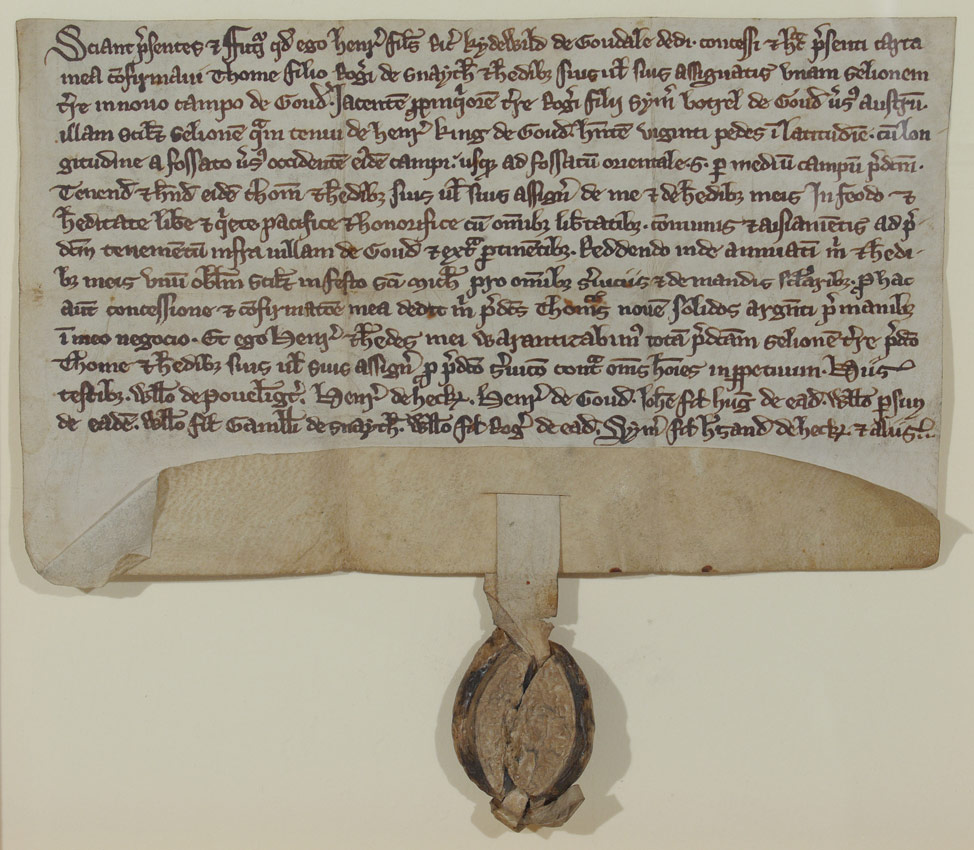 Sciant p̄sentes & futͥ qd̄ ego henr̄ fil̄s Ric̄ kydewild de Goudale dedi. concessi & hac p̄senti carta
mea ꝯfirmaui Thome filio Rog̾i de snaych̄ & h̄edibꝫ suis ul̄ suis assignatis vnam selionem
t̄re in nouo campo de Goud̾. Jacentē ꝓpinq̇orē t̄re Rog̾i filii Sym̄ botrel de Goud̾ v̾sꝰ austrū.
illam scil̄ꝫ selionē q̄m tenui de henr̄ king de Goud̾. hn̄tē viginti pedes ī latitudīe. cū lon
gitudine a fossato v̾sꝰ occidentē eid̄e campi. usqꝫ ad fossatū orientale. s. ꝑ mediū campū p̄dcm̄.
Tenend̾ & hn̄d eidē thom̄ & h̄edibꝫ suis ul̄ suis assign̄ de me & de h̄edibꝫ meis In feodo &
h̄editate lib̄e & q̇ete pacifice & honorifice cū om̄ibꝫ lib̄tatibꝫ. cōmunis & aisiam̄tis ad p̄
dcm̄ tenemētū infra uillam de Goud̾ & ext̄ ꝑtinētibꝫ. Reddendo inde annuatī m̄ & h̄edi
bꝫ meis vnū obl̄m scil̄ꝫ in festo sc̄i mich̄ pro om̄ibꝫ s̾uiciis & demandis sc̄laribꝫ. ꝓ hac
aūt concessione & ꝯfirmatōe mea dedit m̄ p̄dc̄s Thomas nouē solidos arg̾nti p̄ manibꝫ
ī meo negocio. Et ego Henr̄ & h̄edes mei warantizabim̄ totā p̄dcam̄ selionē t̄re p̄dc̄o
Thome & h̄edibꝫ suis ul̄ suis assign̄ ꝓ p̄dc̄o s̾uicō cont̄ om̄s hoīes inꝑpetuum. Hiis
testibꝫ. Will̄o de Henr̄ de heck̄. Henr̄ de Goud̾. Joh̄e fil̄ hug̾ de ead̾. Will̄o ꝑsun
de eadē. Will̄o fil̄ Gamill̄i de snaych̄. Will̄o fil̄ Rog̾ de ead̾. Sym̄ fil̄ de heck̄. & aliis.